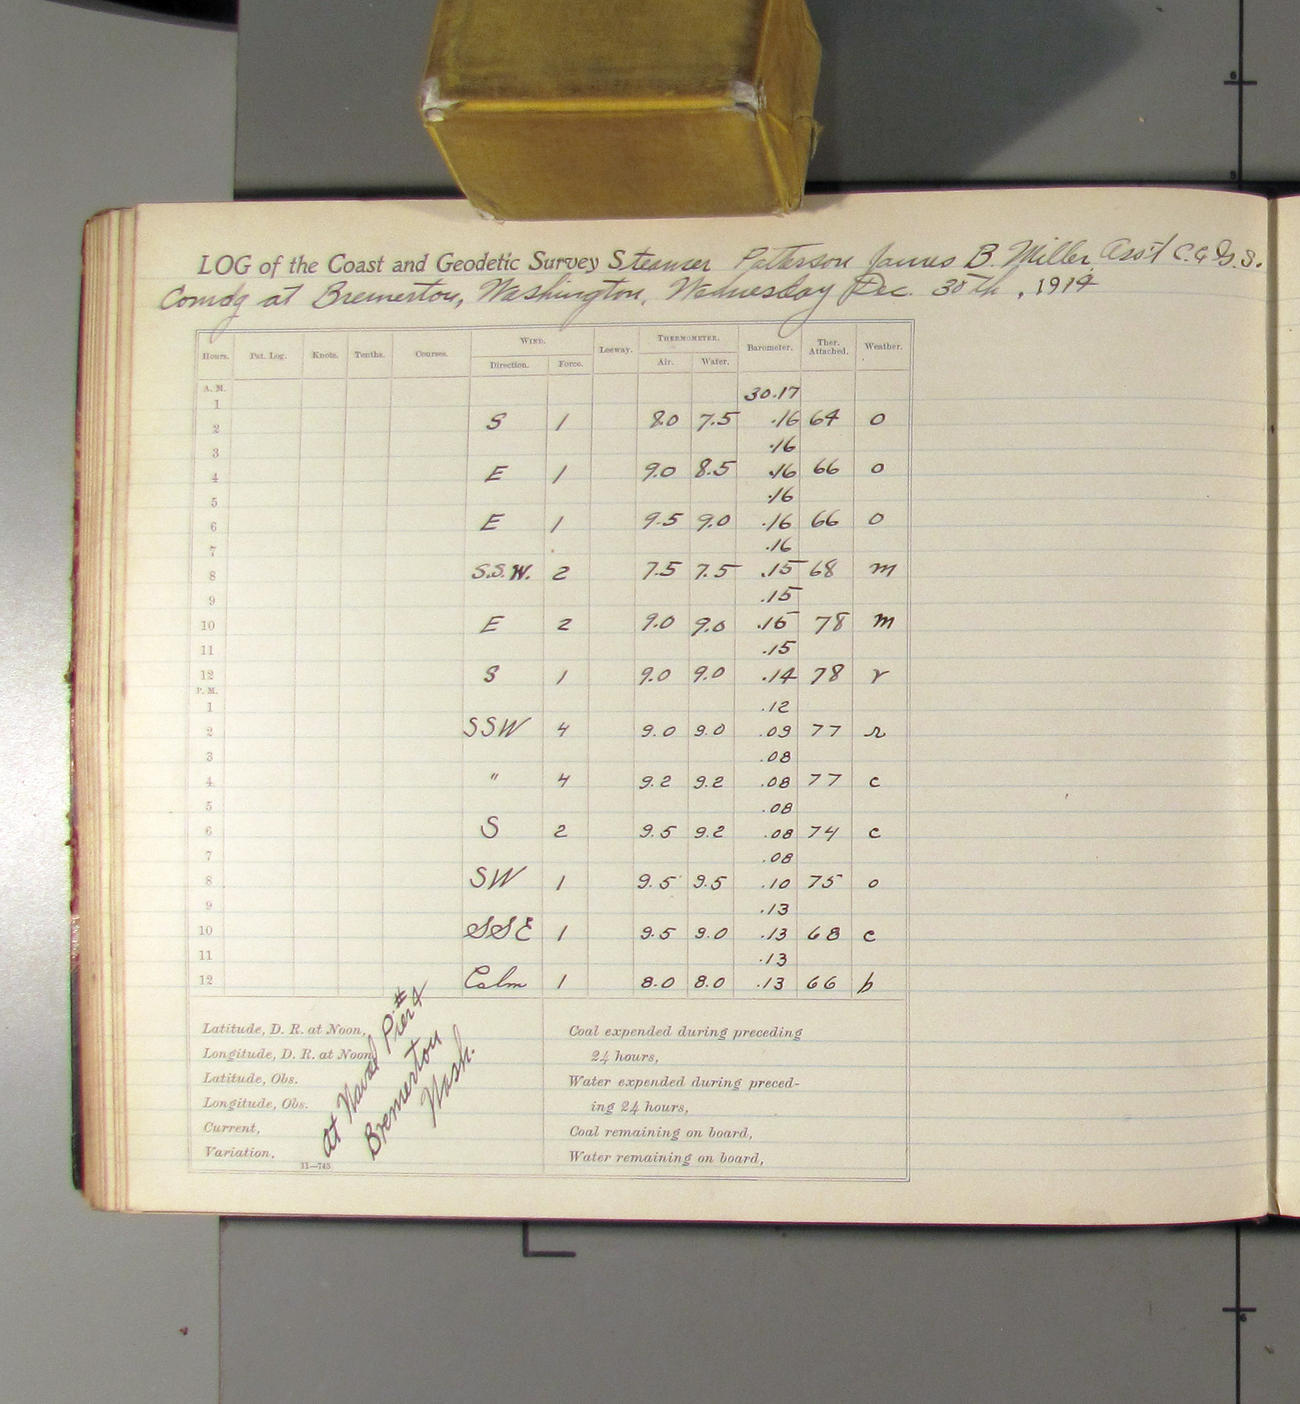 LOG of the Coast and Geodetic Survey Steamer Patterson James B. Miller Ass't C. & G. S.
Comdg at Bremerton, Washington, Wednesday Dec. 30th, 1914
Hours. Pat. Log. Knots. Tenths. Courses. WIND. Leeway. THERMOMETER. Barometer. Ther. Attached. Weather.
Direction. Force. Air. Water.
A. M. 30.17
1
2 S 1 8.0 7.5 .16 64 o
3 .16
4 E 1 9.0 8.5 .16 66 o
5 .16
6 E 1 9.5 9.0 .16 66 o
7 .16
8 S.S.W. 2 7.5 7.5 .15 68 m
9 .15
10 E 2 9.0 9.0 .15 78 m
11 .15
12 S 1 9.0 9.0 .14 78 r
P. M.
1 .12
2 SSW 4 9.0 9.0 .09 77 r
3 .08
4 " 4 9.2 9.2 .08 77 c
5 .08
6 S 2 9.5 9.2 .08 74 c
7 .08
8 SW 1 9.5 9.5 .10 75 o
9 .13
10 SSE 1 9.5 9.0 .13 68 c
11 .13
12 Calm 1 8.0 8.0 .13 66 b
Latitude, D. R. at Noon,
Longitude, D. R. at Noon,
Latitude, Obs.
Longitude, Obs.
Current,
Variation,
11—745
At Naval Pier #4
Bremerton
Wash.
Coal expended during preceding
24 hours,
Water expended during preced-
ing 24 hours,
Coal remaining on board,
Water remaining on board,
6
5
6